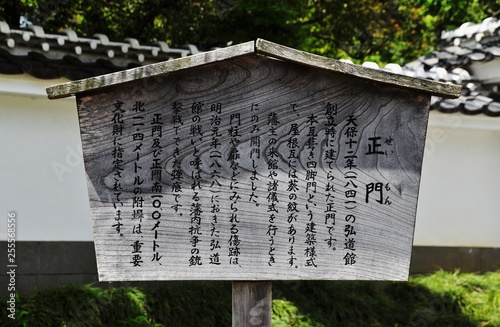 正門
せい もん
天保十二年(一八四一)の弘道館
創立時に建てられた正門です。
本瓦葺き四脚門という建築様式
で、屋根瓦には葵の紋があります。
藩主の来館や諸儀式を行うとき
にのみ開門しました。
門柱や扉などにみられる傷跡は、
明治元年(一八六八)におきた弘道
館の戦いと呼ばれる藩内抗争の銃
撃戦でできた弾痕です。
正門及び正門南二〇〇メートル、
北一一・四メートルの附塀は、重要
文化財に指定されています。
255568556
Adobe Stock